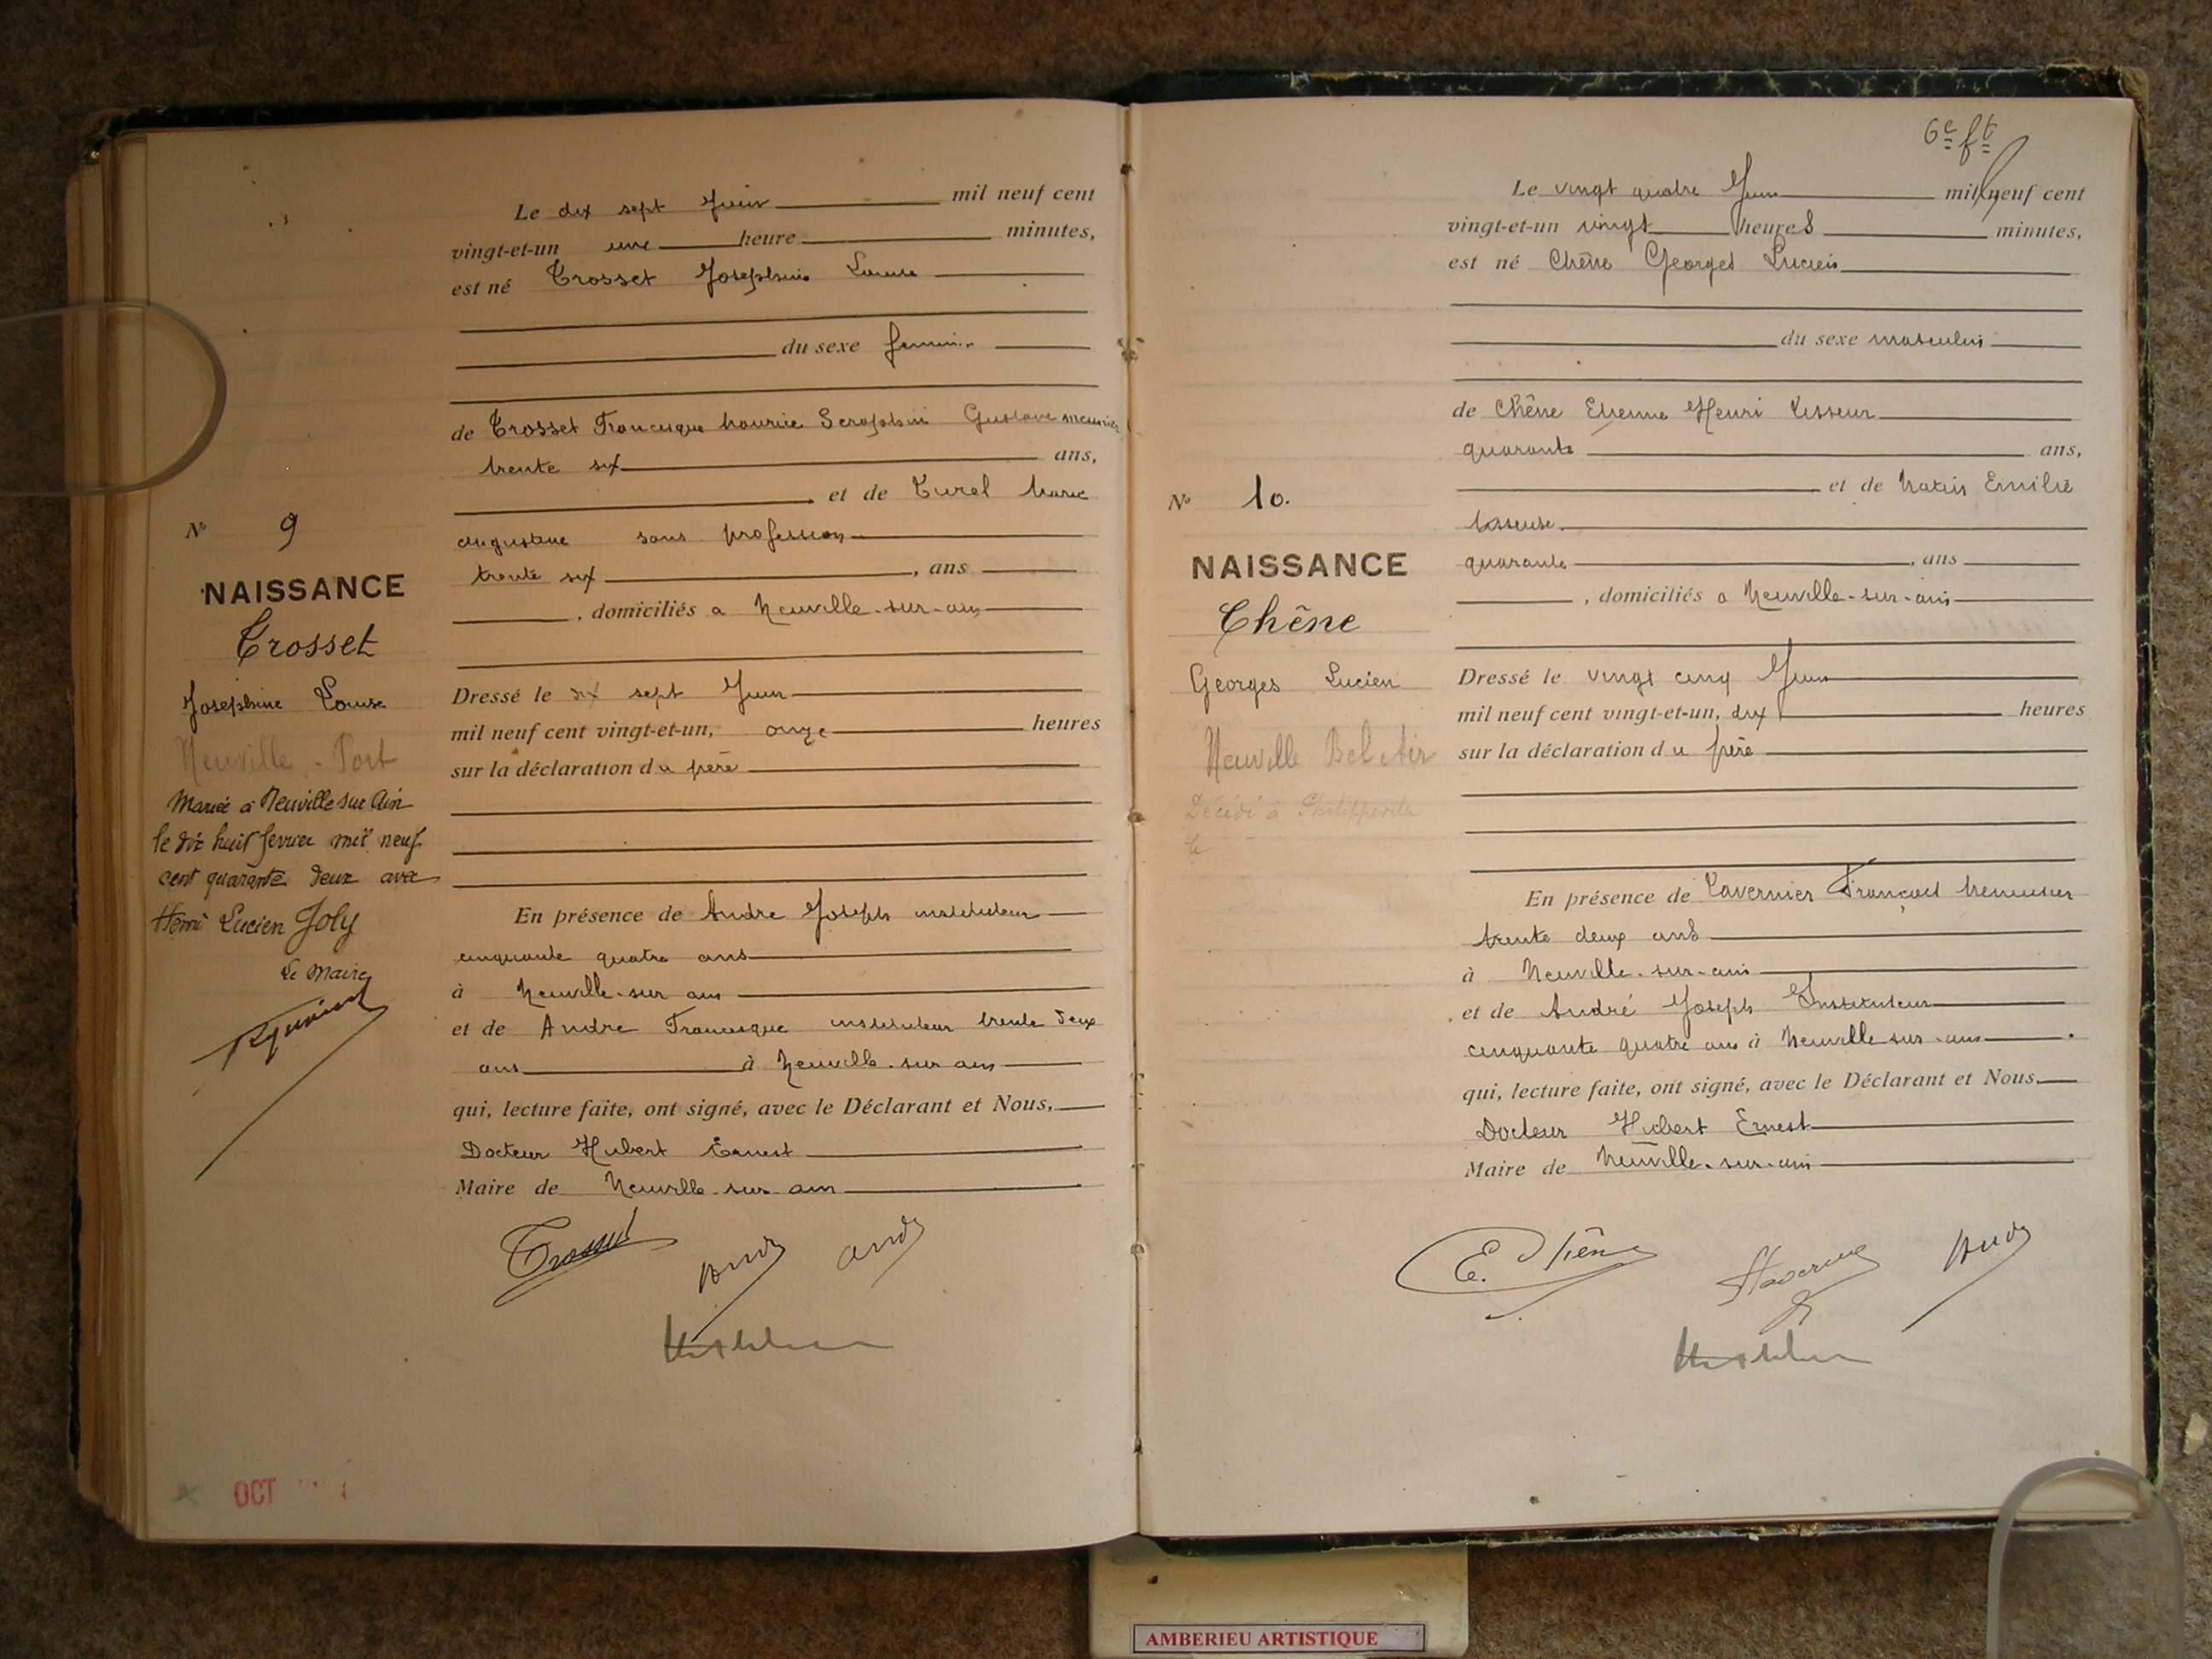 Le dix sept Juin mil neuf cent
vingt-et-un une heure minutes,
est né Trosset Josephine Louise
du sexe feminin
de Trosset Francisque Maurice Seraphin Gustave menuisier
trente six ans,
et de Turel Marie
augustine sans profession
trente six , ans
, domiciliés a Neuville-sur-ain
Dressé le dix sept Juin
mil neuf cent vingt-et-un, onze heures
sur la déclaration du père
En présence de Andre Joseph instituteur
cinquante quatre ans
à Neuville-sur ain
et de Andre Francisque instituteur trente deux
ans à Neuville-sur ain
qui, lecture faite, ont signé, avec le Déclarant et Nous,
Docteur Hubert Ernest
Maire de Neuville-sur-ain
N° 9
NAISSANCE
Trosset
Josephine Louise
Neuville - Port
Mariée à Neuville sur Ain
le dix huit fevrier mil neuf
cent quarante deux avec
Henri Lucien Joly
Le Maire
OCT
6e ft
Le vingt quatre Juin mil neuf cent
vingt-et-un vingt heures minutes,
est né Chêne Georges Lucien
du sexe masculin
de Chêne Etienne Henri tisseur
quarante ans,
et de Emilie
tisseuse
quarante , ans
, domiciliés a Neuville-sur-ain
Dressé le vingt cinq Juin
mil neuf cent vingt-et-un, dix heures
sur la déclaration du père
En présence de Tavernier François menuisier
trente deux ans
à Neuville-sur-ain
et de André Joseph Instituteur
cinquante quatre ans à Neuville-sur-ain
qui, lecture faite, ont signé, avec le Déclarant et Nous,
Docteur Hubert Ernest
Maire de Neuville-sur-ain
N° 10.
NAISSANCE
Chêne
Georges Lucien
Neuville Bel Air
Décédé à
le
Trosset
André
André
E. Chêne
Tavernier
André
AMBERIEU ARTISTIQUE